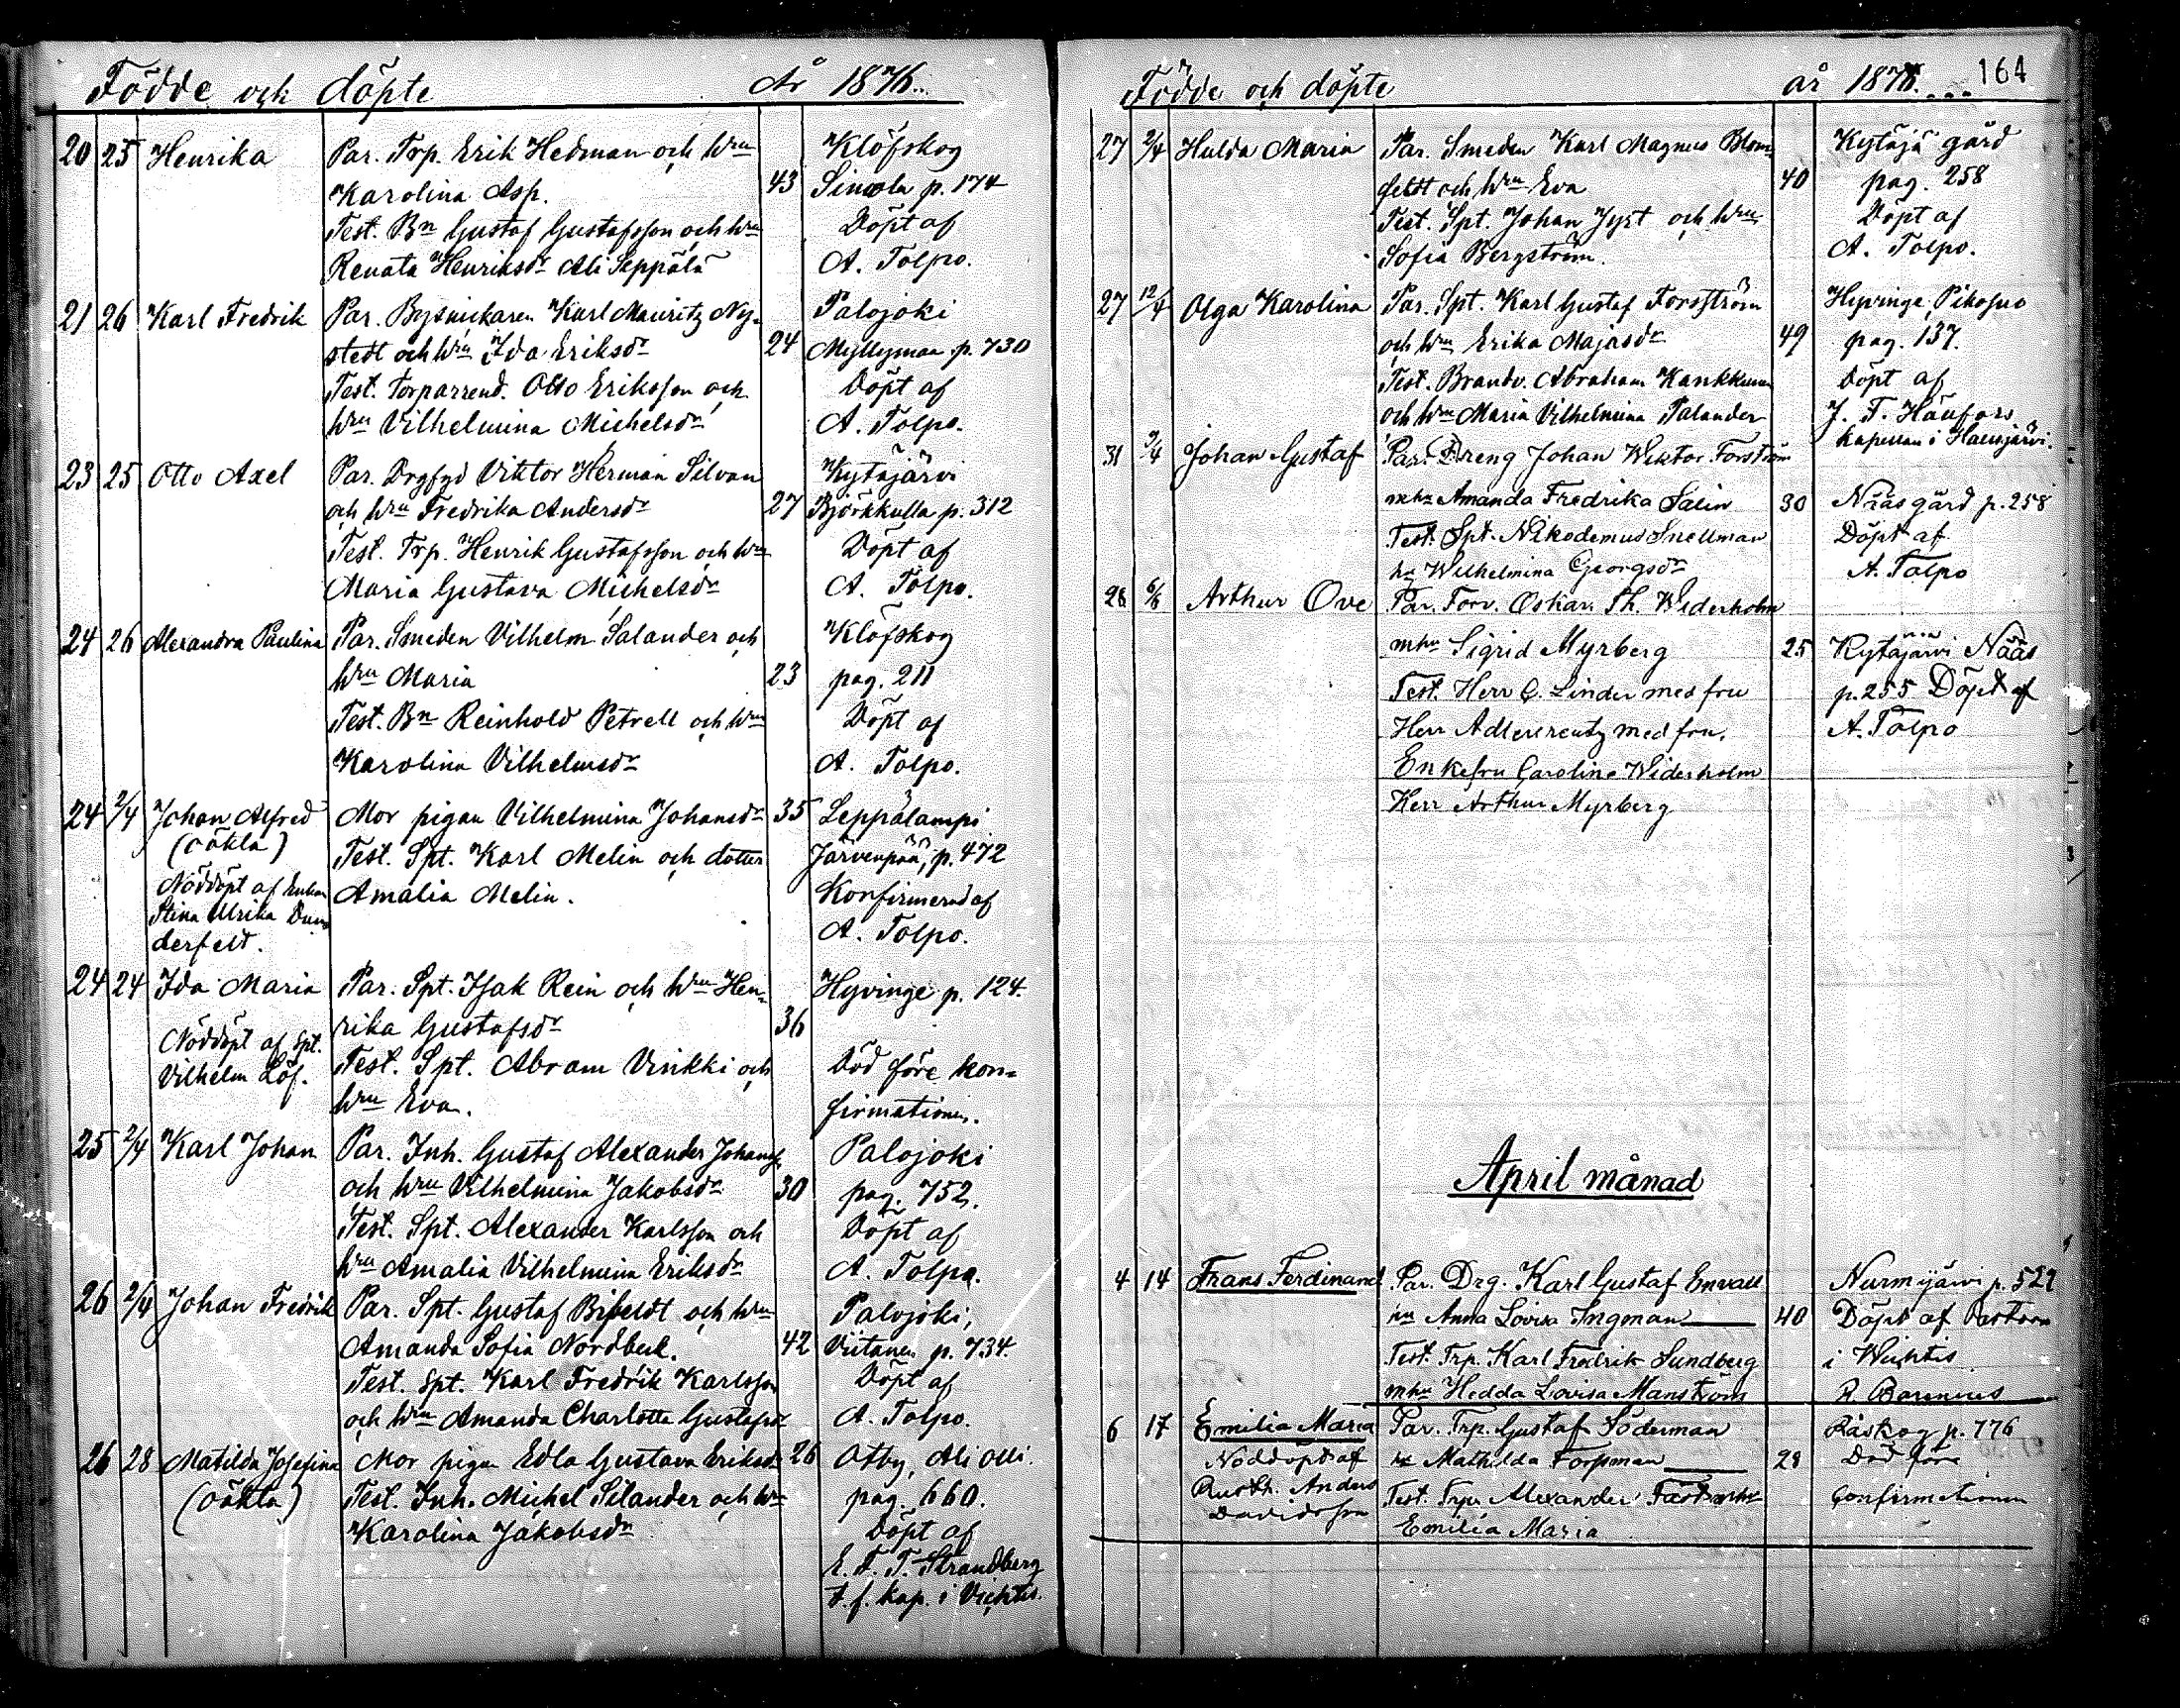 Födde och döpte År 1876.
20 25 Henrika Par. Trp. Erik Hedman och hru Klöfskog
Karolina Asp. 43 Simola p. 174
Test. Bn Gustaf Gustafsson och hru Döpt af
Renata Henriksdr Ali Seppälä A. Tolpo.
21 26 Karl Fredrik Par. Bysnickaren Karl Mauritz Ny- Palojoki
stedt och hru Ida Eriksdr 24 Myllymaa p. 730
Test. torparrend. Otto Eriksson och Döpt af
hru Vilhelmina Michelsdr A. Tolpo.
23 25 Otto Axel Par. Drgfgd Viktor Herman Silvan Kytäjärvi
och hru Fredrika Andersdr 27 Björkkulla p. 312
Test. Trp. Henrik Gustafsson och hru Döpt af
Maria Gustava Michelsdr A. Tolpo.
24 26 Alexandra Paulina Par. Smeden Vilhelm Salander och Klöfskog
hru Maria 23 pag. 211
Test. Bn Reinhold Petrell och hru Döpt af
Karolina Vilhelmsdr A. Tolpo.
24 2/4 Johan Alfred Mor pigan Vilhelmina Johansdr 35 Leppälampi
(oäkta) Test. Spt. Karl Melin och dotter Järvenpää, p. 472
Nöddöpt af Enkan Amalia Melin. Konfirmerad af
Stina Ulrika Dun A. Tolpo.
derfelt.
24 24 Ida Maria Par. Spt. Isak Rein och hru Hen- Hyvinge p. 124.
rika Gustafsdr 36
Nöddöpt af Spt. Test. Spt. Abram Vinkki och Död före kon-
Vilhelm Löf. hru Eva. firmationen.
25 2/4 Karl Johan Par. Inh. Gustaf Alexander Johanss. Palojoki
och hru Vilhelmina Jakobsdr 30 pag. 752.
Test. Spt. Alexander Karlsson och Döpt af
hru Amalia Vilhelmina Eriksdr A. Tolpo.
26 2/4 Johan Fredrik Par. Spt. Gustaf Bifeldt och hru Palojoki,
Amanda Sofia Nordbeck. 42 Viitanen p. 734.
Test. Spt. Karl Fredrik Karlsson Döpt af
och hru Amanda Charlotta Gustafsdr A. Tolpo.
26 28 Matilda Josefina Mor pigan Edla Gustava Eriksdr 26 Otby, Ali Olli.
(oäkta) Test. Inh. Michel Silander och hru pag. 660.
Karolina Jakobsdr Döpt af
E. F. T. Strandberg
t. f. kap. i Vichtis.
Födde och döpte år 1876. 164
27 2/4 Hulda Maria Par. Smeden Karl Magnus Blom- Kytäjä gård
feldt och hru Eva 40 pag. 258
Test. Spt. Johan Jyst och hru Döpt af
Sofia Bergström. A. Tolpo.
27 12/4 Olga Karolina Par. Spt. Karl Gustaf Forsström Hyvinge, Pikosuo
och hru Erika Majasdr 49 pag. 137.
Test. Brandv. Abraham Kankkunen Döpt af
och hru Maria Vilhelmina Talander J. F. Hänfors
kapellan i Hausjärvi.
31 9/4 Johan Gustaf Par. Dreng Johan Wiktor Forström
mhu Amanda Fredrika Salin 30 Nääs gård p. 258
Test. Spt. Nikodemus Snellman Döpt af
hu Wilhelmina Georgsdr A. Tolpo
28 6/6 Arthur Ove Par. Forv. Oskar. Th. Widerholm
mhu Sigrid Myrberg 25 Kytäjärvi Nääs
Test. Herr C. Linder med fru p. 255 Döpt af
Herr Adlercreutz med fru. A. Tolpo
Enkefru Caroline Widerholm
Herr Arthur Myrberg
April månad
4 14 Frans Ferdinand Par. Drg. Karl Gustaf Envall Nurmijärvi p. 529
hu Anna Lovisa Ingman 40 Döpt af Pastorn
Test. Trp. Karl Fredrik Sundberg i Wichtis
mhu Hedda Lovisa Manström R. Borenius
6 17 Emilia Maria Par. Trp. Gustaf Söderman Råskog p. 776
Nöddöpt af hu Mathilda Forsman 28 Död före
Rusth. Anders Test. Trp. Alexander Fast mhu Confirmationen
Davidsson Emilia Maria